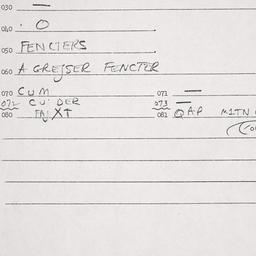 030 —
040 . O
050 FENCTERS
060 A GREJSER FENCTER
070 CUM 071 —
072 CU DER 073 —
080 081 QAP MITN